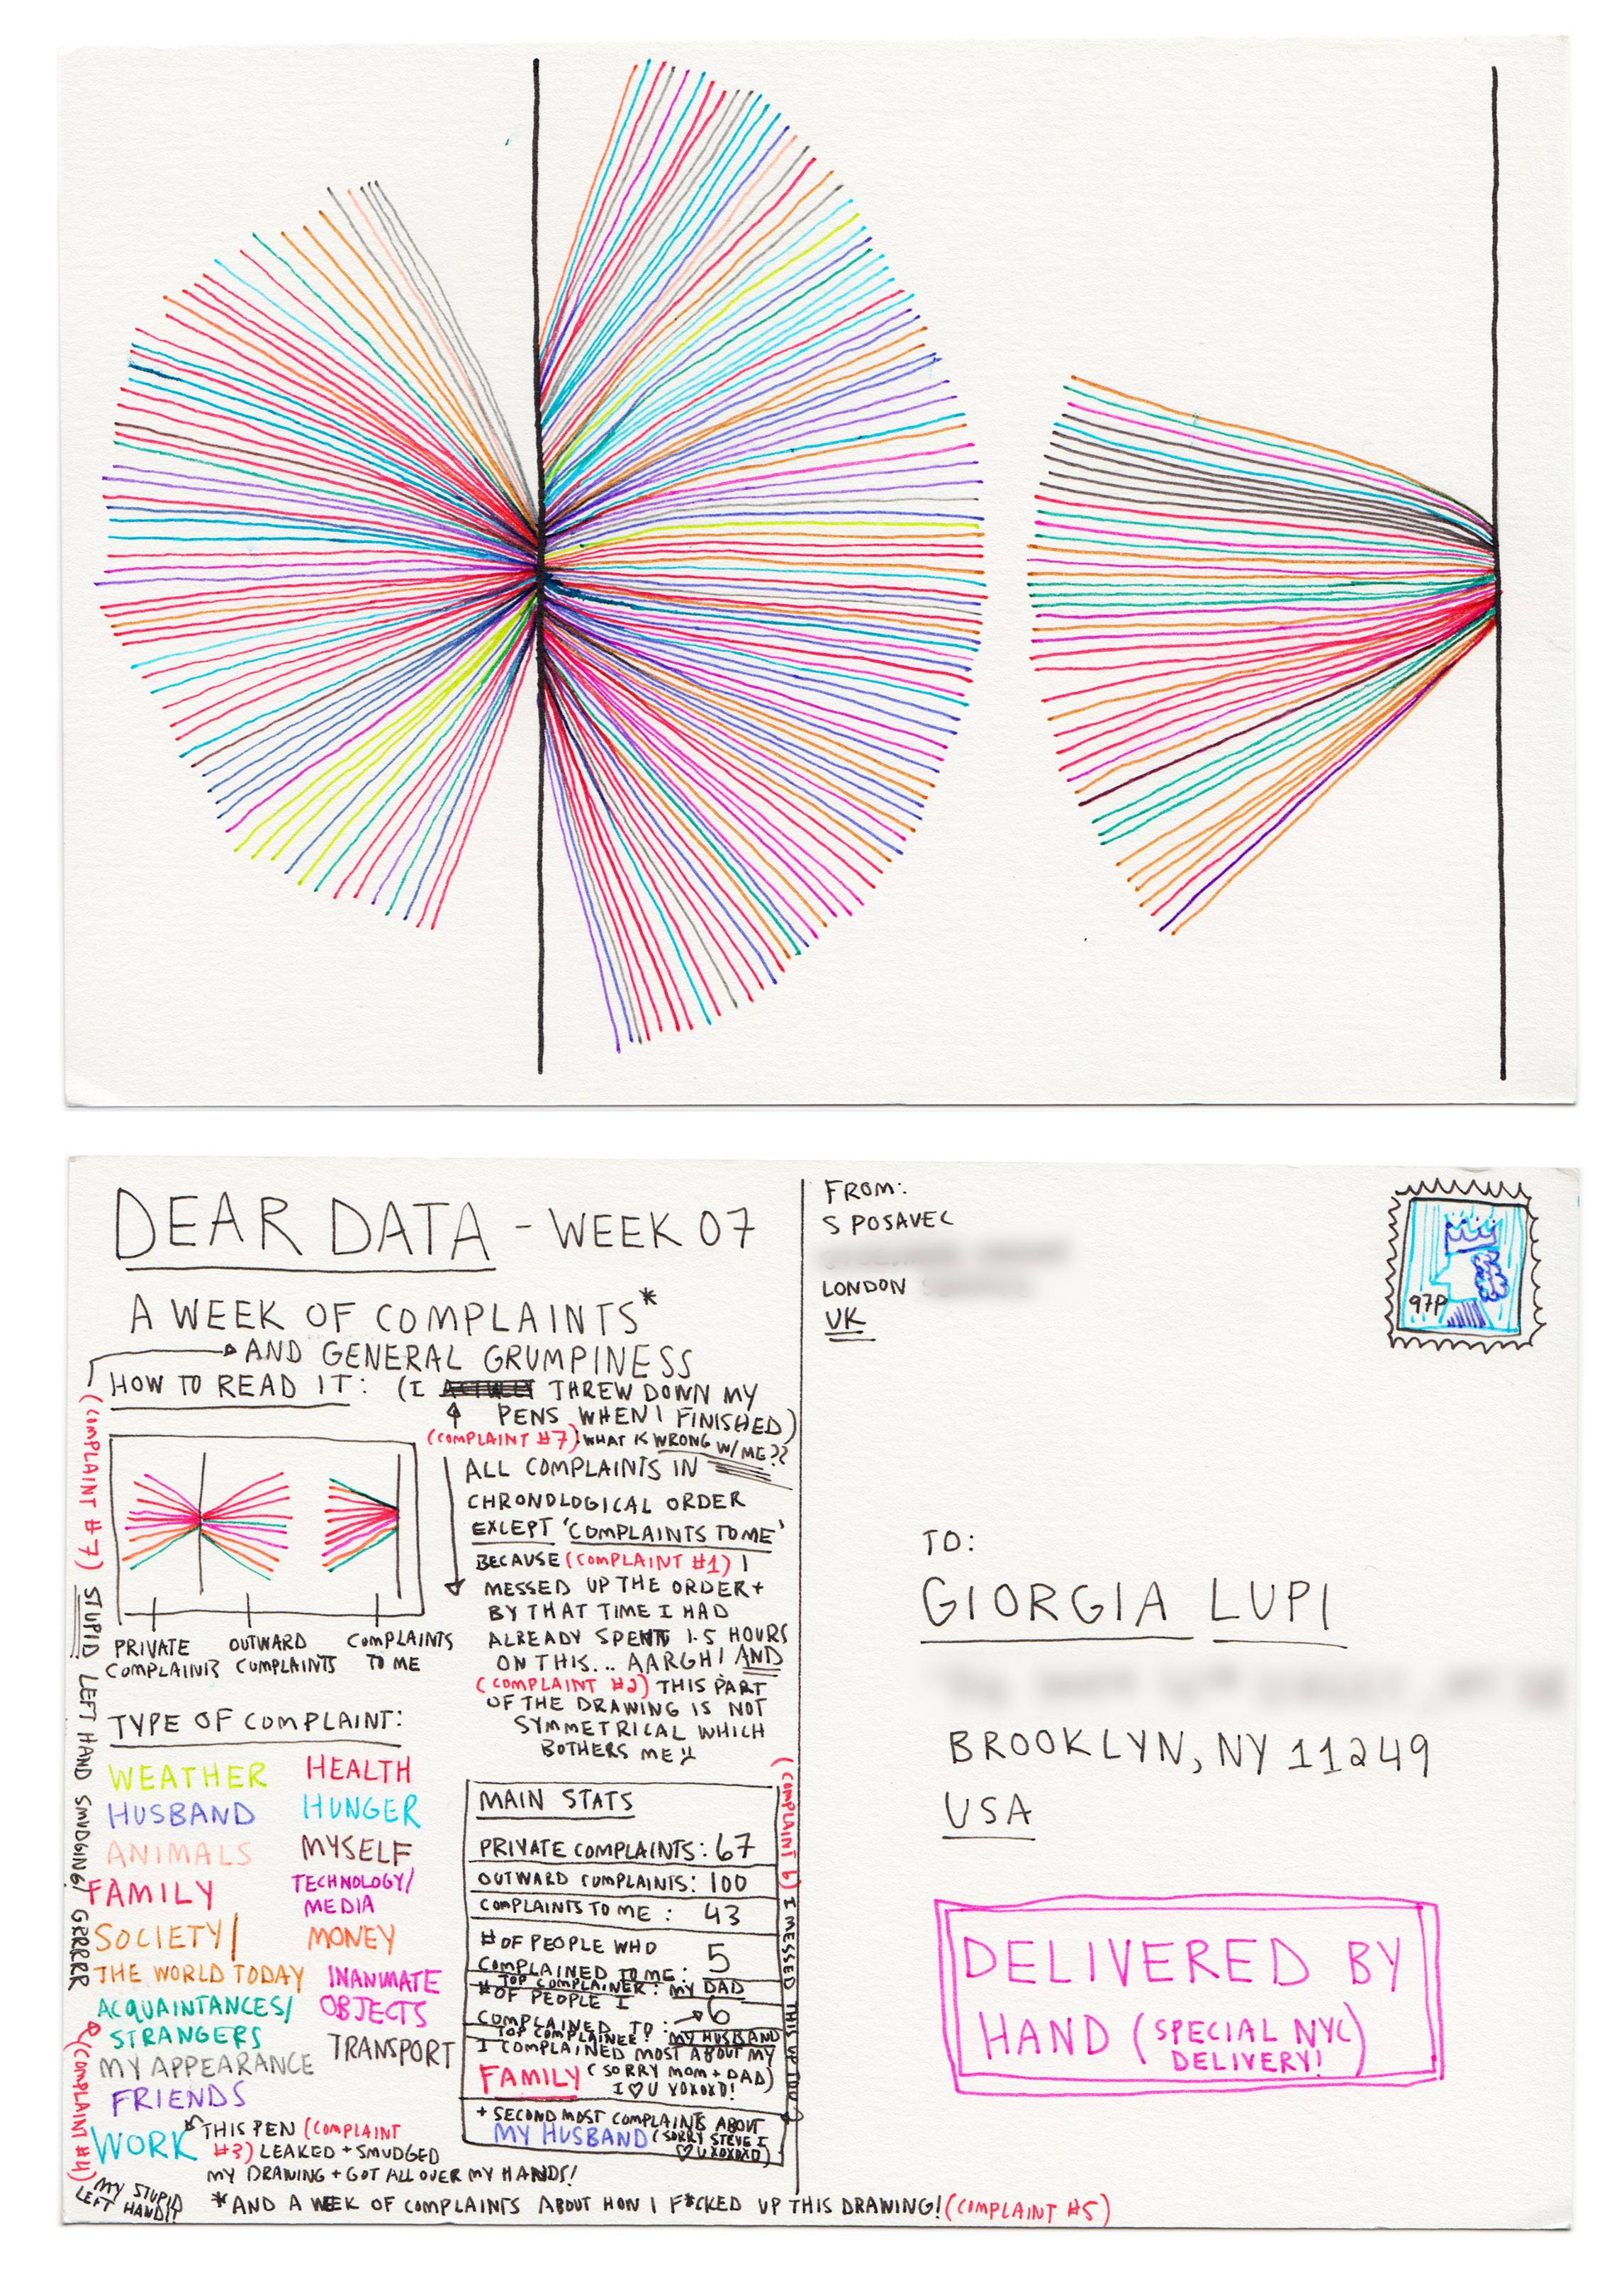 DEAR DATA - WEEK 07
A WEEK OF COMPLAINTS*
AND GENERAL GRUMPINESS
HOW TO READ IT: (I THREW DOWN MY
PENS WHEN I FINISHED)
(COMPLAINT #7) WHAT IS WRONG W/ ME??
ALL COMPLAINTS IN
CHRONOLOGICAL ORDER
EXCEPT 'COMPLAINTS TO ME'
BECAUSE (COMPLAINT #1) I
MESSED UP THE ORDER +
BY THAT TIME I HAD
ALREADY SPENT 1.5 HOURS
ON THIS... AARGH! AND
(COMPLAINT #2) THIS PART
OF THE DRAWING IS NOT
SYMMETRICAL WHICH
BOTHERS ME
PRIVATE COMPLAINTS
OUTWARD COMPLAINTS
COMPLAINTS TO ME
(COMPLAINT #7) STUPID LEFT HAND SMUDGING! GRRRRR
TYPE OF COMPLAINT:
WEATHER
HUSBAND
ANIMALS
FAMILY
SOCIETY/
THE WORLD TODAY
ACQUAINTANCES/
STRANGERS
MY APPEARANCE
FRIENDS
WORK
HEALTH
HUNGER
MYSELF
TECHNOLOGY/
MEDIA
MONEY
INANIMATE
OBJECTS
TRANSPORT
THIS PEN (COMPLAINT
#3) LEAKED + SMUDGED
MY DRAWING + GOT ALL OVER MY HANDS!
(COMPLAINT #4)
MY STUPID
LEFT HAND!!
MAIN STATS
PRIVATE COMPLAINTS: 67
OUTWARD COMPLAINTS: 100
COMPLAINTS TO ME: 43
# OF PEOPLE WHO
COMPLAINED TO ME: 5
TOP COMPLAINER: MY DAD
# OF PEOPLE I
COMPLAINED TO: 6
TOP COMPLAINEE: MY HUSBAND
I COMPLAINED MOST ABOUT MY
FAMILY (SORRY MOM + DAD)
I ♡ U XOXOXO!
+ SECOND MOST COMPLAINTS ABOUT
MY HUSBAND (SORRY STEVE I
♡ U XOXOXO)
(COMPLAINT 6) I MESSED THIS UP TOO
*AND A WEEK OF COMPLAINTS ABOUT HOW I F*CKED UP THIS DRAWING! (COMPLAINT #5)
FROM:
S POSAVEC
LONDON
UK
97P
TO:
GIORGIA LUPI
BROOKLYN, NY 11249
USA
DELIVERED BY
HAND (SPECIAL NYC
DELIVERY!)